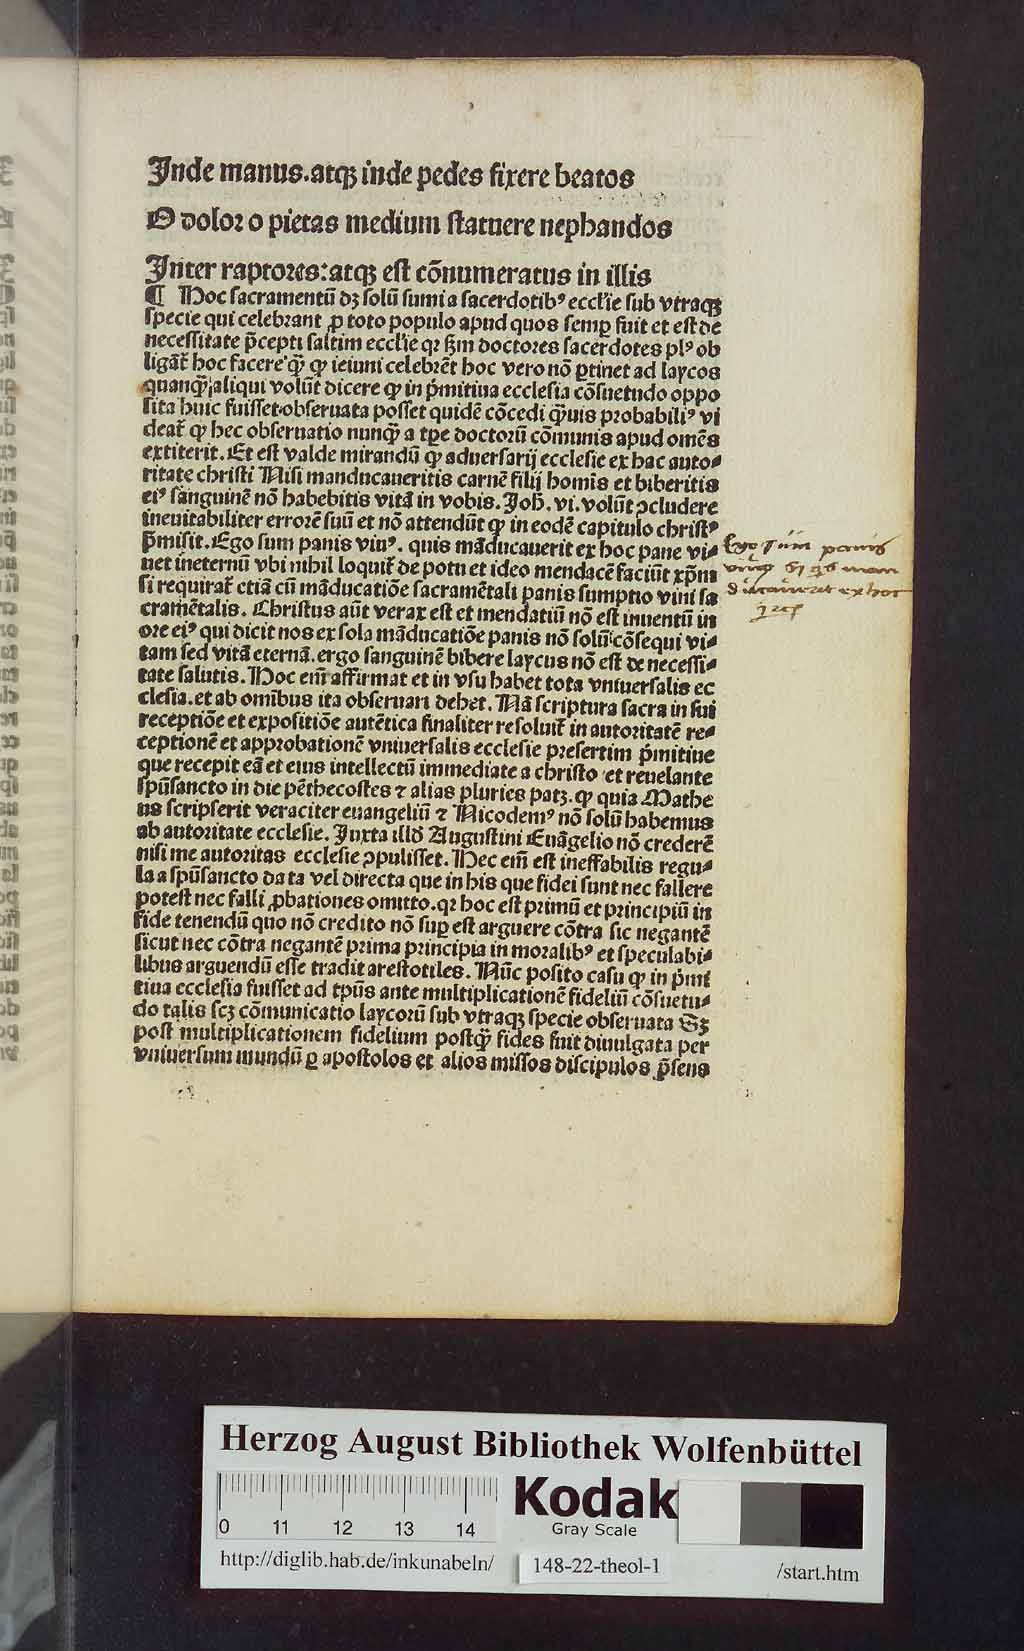 Inde manus.atqꝫ inde pedes fixere beatos
O dolor o pietas medium statuere nephandos
Inter raptores:atqꝫ est cōnumeratus in illis
¶ Hoc sacramentū dꝫ solū sumi a sacerdotibꝰ eccl'ie sub vtraqꝫ
specie qui celebrant ꝓ toto populo apud quos semꝑ fuit et est de
necessitate p̄cepti saltim eccl'ie qꝛ ẜm doctores sacerdotes plꝰ ob
ligāt̄ hoc facere q̄ꝫ ꝙ ieiuni celebrēt hoc vero nō ꝑtinet ad laycos
quanq̄ꝫ aliqui volūt dicere ꝙ in p̄mitiua ecclesia cōsuetudo oppo
sita huic fuisset obseruata posset quidē cōcedi q̄ꝫuis probabiliꝰ vi
deat̄ ꝙ hec obseruatio nunq̄ꝫ a tꝑe doctorū cōmunis apud omēs
extiterit. Et est valde mirandū ꝙ aduersarij ecclesie ex hac auto⸗
ritate christi Nisi manducaueritis carnē filij homīs et biberitis
eiꝰ sanguinē nō habebitis vitā in vobis. Joh̄. vi. volūt ꝯcludere
ineuitabiliter errorē suū et nō attendūt ꝙ in eodē capitulo christꝰ
p̄misit. Ego sum panis viuꝰ. quis māducauerit ex hoc pane vi⸗
uet ineternū vbi nihil loquit̄ de potu et ideo mendacē faciūt xp̄m
si requirat̄ etiā cū māducatiōe sacramētali panis sumptio vini sa
cramētalis. Christus aūt verax est et mendatiū nō est inuentū in
ore eiꝰ qui dicit nos ex sola māducatiōe panis nō solū cōsequi vi⸗
tam sed vitā eternā. ergo sanguinē bibere laycus nō est de necessi⸗
tate salutis. Hoc em̄ affirmat et in vsu habet tota vniuersalis ec
clesia. et ab omībus ita obseruari debet. Nā scriptura sacra in sui
receptiōe et expositiōe autētica finaliter resoluit̄ in autoritatē re⸗
ceptionē et approbationē vniuersalis ecclesie presertim p̄mitiue
que recepit eā et eius intellectū immediate a christo et reuelante
spūsancto in die pēthecostes ⁊ alias pluries patꝫ. ꝙ quia Mathe
us scripserit veraciter euangeliū ⁊ Nicodemꝰ nō solū habemus
ab autoritate ecclesie. Juxta illō Augustini Euāgelio nō crederē
nisi me autoritas ecclesie ꝯpulisset. Hec em̄ est ineffabilis regu⸗
la a spūsancto data vel directa que in his que fidei sunt nec fallere
potest nec falli ꝓbationes omitto. qꝛ hoc est primū et principiū in
fide tenendū quo nō credito nō suꝑ est arguere cōtra sic negantē
sicut nec cōtra negantē prima principia in moralibꝰ et speculabi⸗
libus arguendū esse tradit arestotiles. Nūc posito casu ꝙ in p̄mi
tiua ecclesia fuisset ad tp̄us ante multiplicationē fideliū cōsuetu⸗
do talis scꝫ cōmunicatio laycorū sub vtraqꝫ specie obseruata Sꝫ
post multiplicationem fidelium postq̄ꝫ fides fuit diuulgata per
vniuersum mundū ꝑ apostolos et alios missos discipulos p̄sens
Ego sum panis
viuꝰ si q̇s man
ducauerit ex hoc
Herzog August Bibliothek Wolfenbüttel
0 11 12 13 14
Kodak
Gray Scale
http://diglib.hab.de/inkunabeln/ 148-22-theol-1 /start.htm